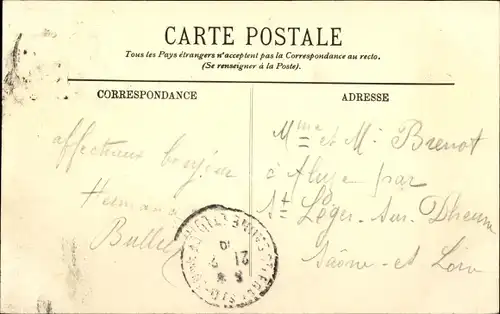 CARTE POSTALE
Tous les Pays étrangers n'acceptent pas la Correspondance au recto.
(Se renseigner à la Poste).
CORRESPONDANCE
ADRESSE
Mme et M. Brenot
à Aluze par
St Léger-Sur-Dheune
Saône-et Loire
affectueux bonjour
21